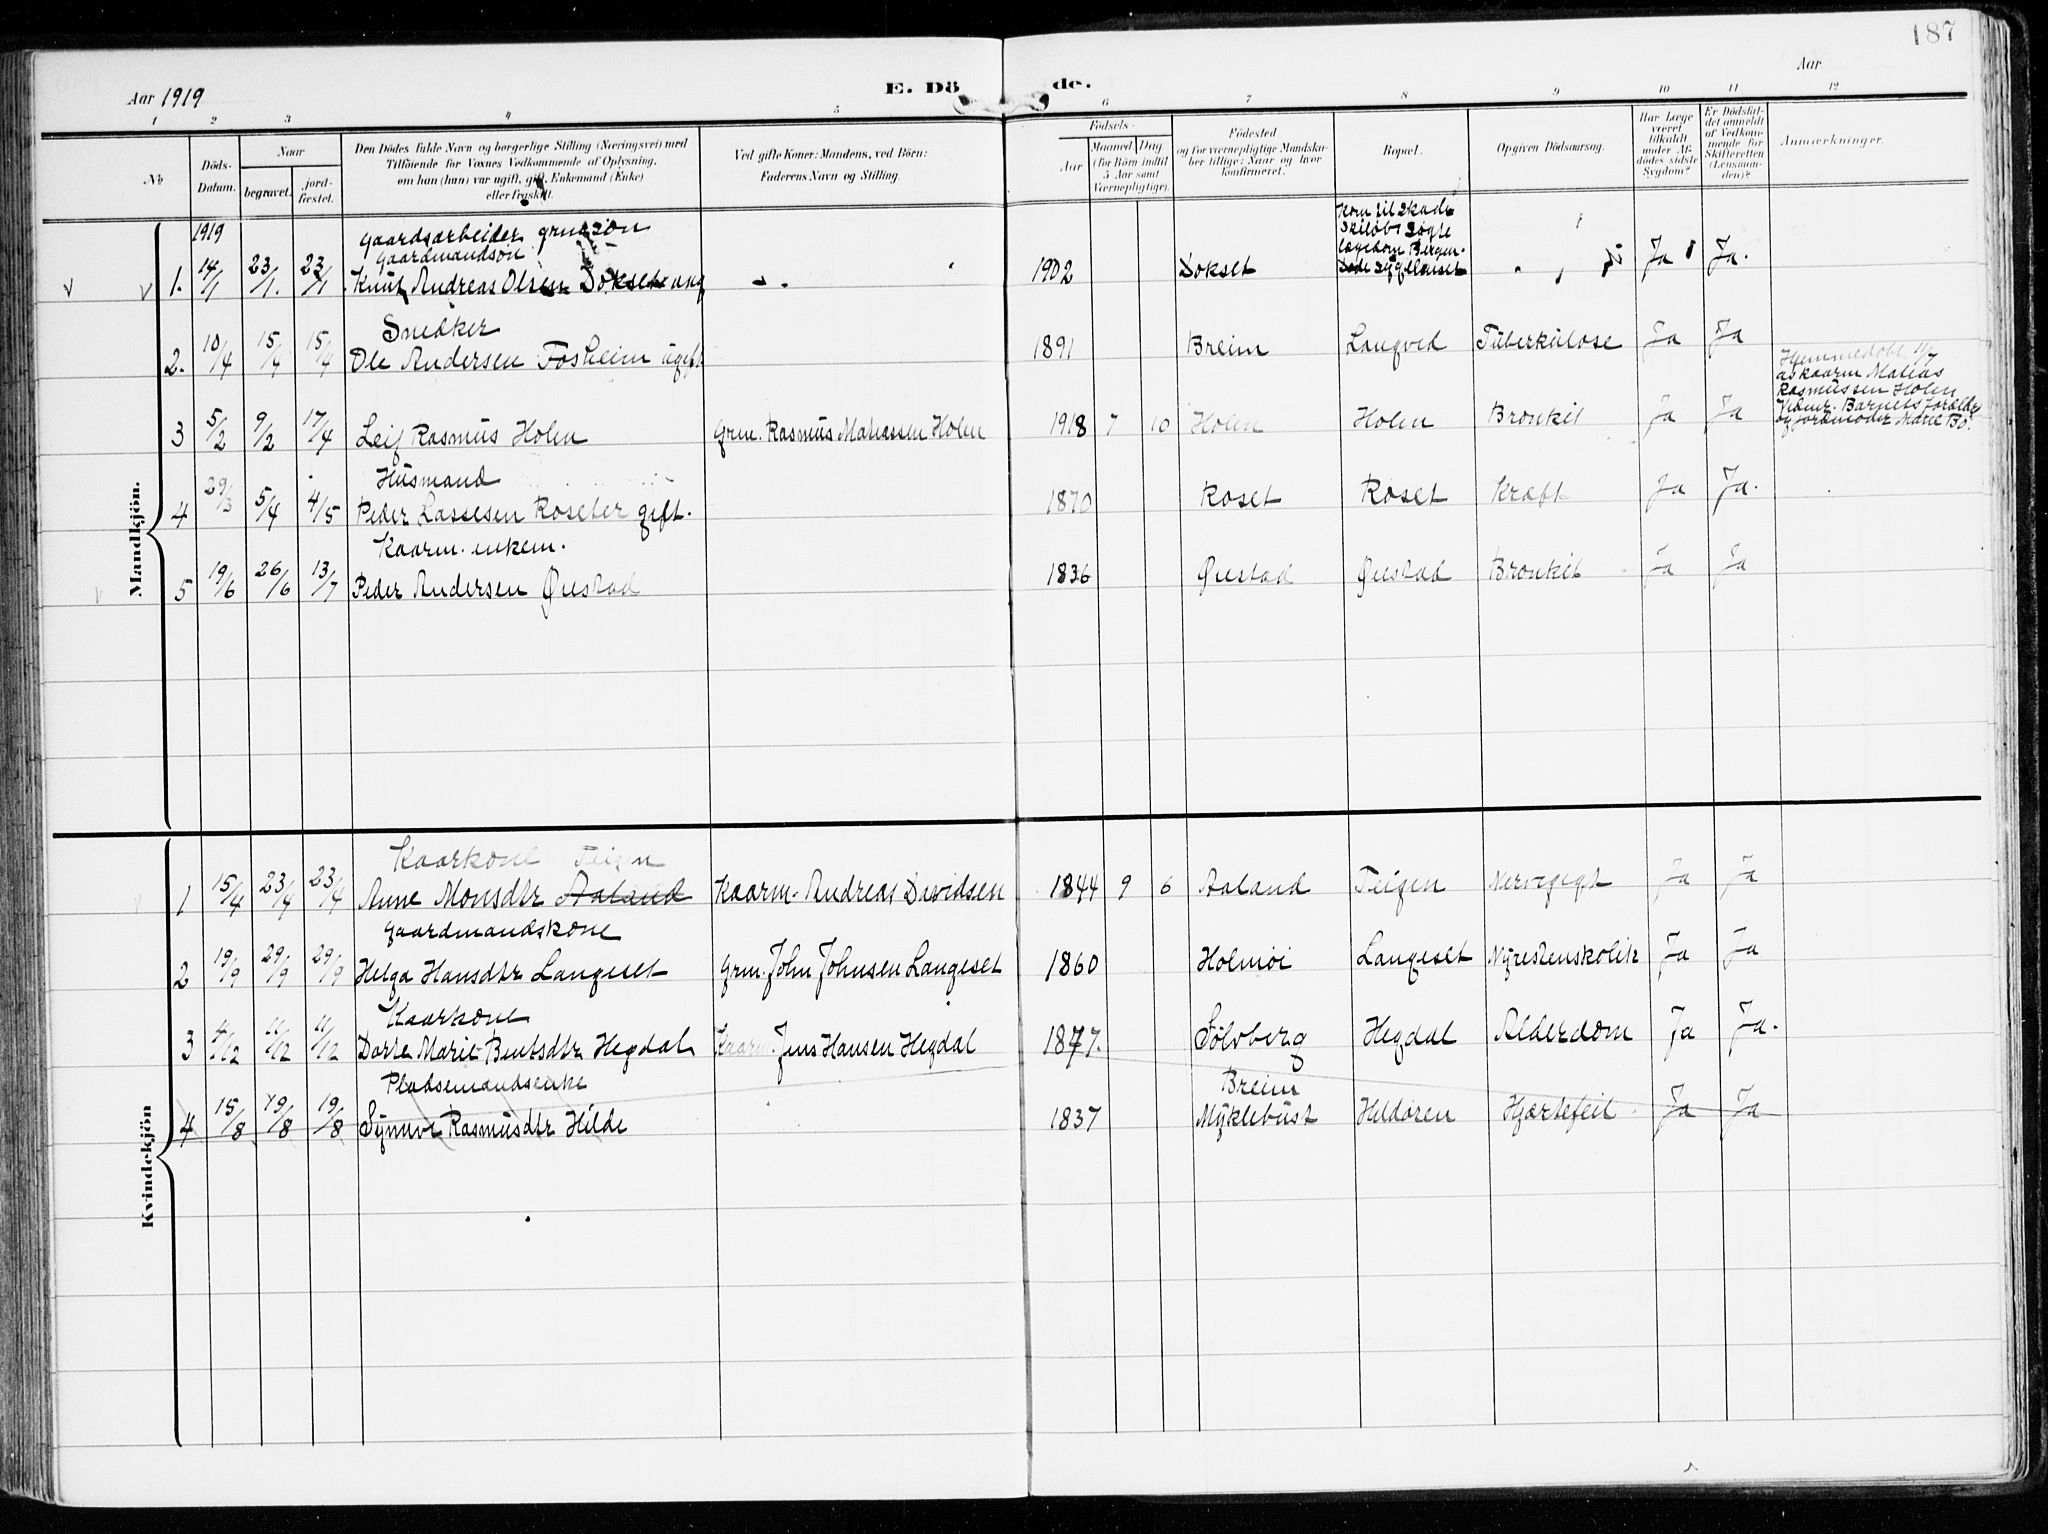 187
Aar 1919
E. Dö de.
Aar
1 2 3 4 5 6 7 8 9 10 11 12
No
Döds-Datum.
Naar
begravet.
jord-fæstet.
Den Dödes fulde Navn og borgerlige Stilling (Næringsvei) med
Tilföiende for Voxnes Vedkommende af Oplysning,
om han (hun) var ugift, gift, Enkemand (Enke)
eller fraskilt.
Ved gifte Koner: Mandens, ved Börn:
Faderens Navn og Stilling.
Födsels-
Aar
Maaned Dag
(for Börn indtil
5 Aar samt
Værnepligtige).
Födested
og for værnepligtige Mandskaber tillige: Naar og hvor
konfirmeret.
Bopæl.
Opgiven Dödsaarsag.
Har Læge
været
tilkaldt
under Afdödes sidste
Sygdom?
Er Dödsfaldet anmeldt
af Vedkommende for
Skifteretten
(Lensmanden)?
Anmærkninger.
Mandkjön.
1919
Gaardsarbeider
Gaardmandsön
1. 14/1 23/1. 23/1 Knut Andreas Olsen Dokset ung 1902 Dokset Ja Ja.
Kom til skade
Skilöb søgte
lægedom Bergen.
Døde sygehuset
Snedker
2. 10/4 15/4 15/4 Ole Andersen Fosheim ugift 1891 Breim Langved Tuberkulose Ja Ja
3 5/2 9/2 17/4 Leif Rasmus Holm Grm. Rasmus Matiassen Holm 1918 7 10 Holm Holm Bronkit Ja Ja
Hjemmedøbt 11/7
av kaarm Matias
Rasmussen Holm
Vidner. Barnets forældre
og jordmoder Marte Bø.
Husmand
4 29/3 5/4 4/5 Peder Lassesen Roseter gift. 1870 Roset Roset Kræft Ja Ja.
Kaarm. enkem.
5 19/6 26/6 13/7 Peder Andersen Øiestad 1836 Øiestad Øiestad Bronkit Ja Ja
Kvindekjön
Kaarkone Teigen
1 15/4 23/4 23/4 Anne Monsdtr Aaland Kaarm. Andreas Davidsen 1844 9 6 Aaland Teigen Nervegigt Ja Ja
Gaardmandskone
2 19/9 29/9 29/9 Helga Hansdtr Langeset Grm. John Johnsen Langeset 1860 Holmøi Langeset Nyrestenskolik Ja Ja
Kaarkone
3 4/12 11/12 11/12 Dorte Marie Bentsdtr Hegdal Kaarm. Jens Hansen Hegdal 1877. Sølvberg Hegdal Alderdom Ja Ja.
Pladsemandsenke
4 15/8 19/8 19/8 Synnve Rasmusdtr Hilde 1837 Breim
Myklebust Hildøren Hjærtefeil Ja Ja